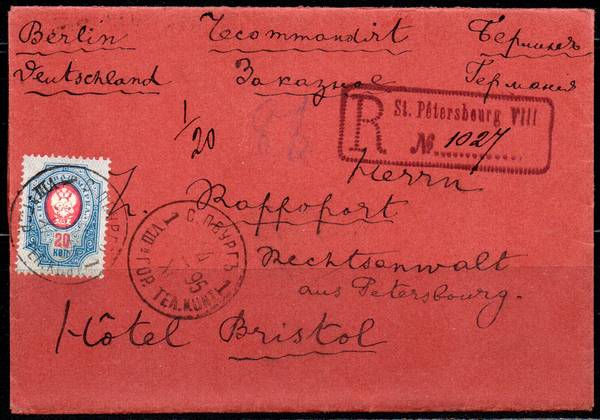 Berlin Recommandirt Берлинъ
Deutschland Заказное Германия
1/20
R St. Pétersbourg VIII
№ 1027
Herrn
H. Rappoport
Rechtsanwalt
aus Petersbourg.
Hôtel Bristol
20
КОП
С. ПБУРГЪ
95
ГОР. ТЕЛ. КОНТ.